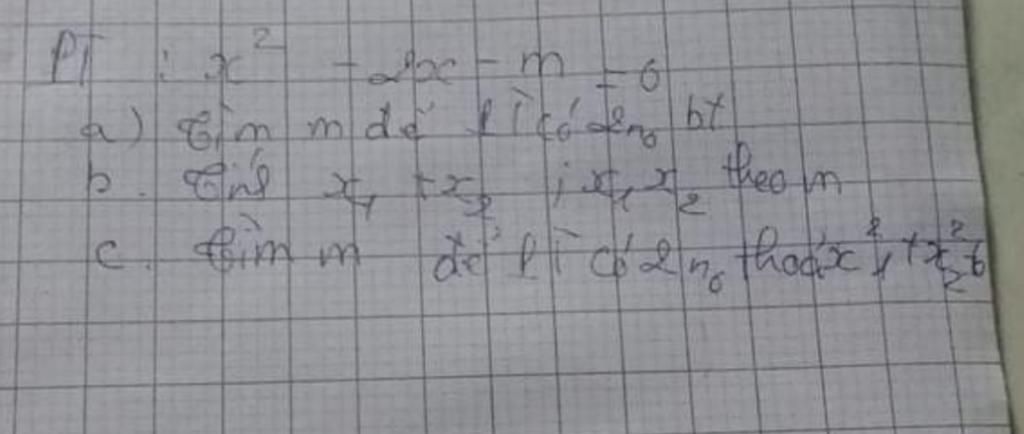 PT : x² - 2x - m = 0
a) Tìm m để PT có 2 n₀ bt
b. Tính x₁ + x₂ ; x₁ x₂ theo m
c. tìm m để PT có 2 n₀ thoả x₁² + x₂² 6